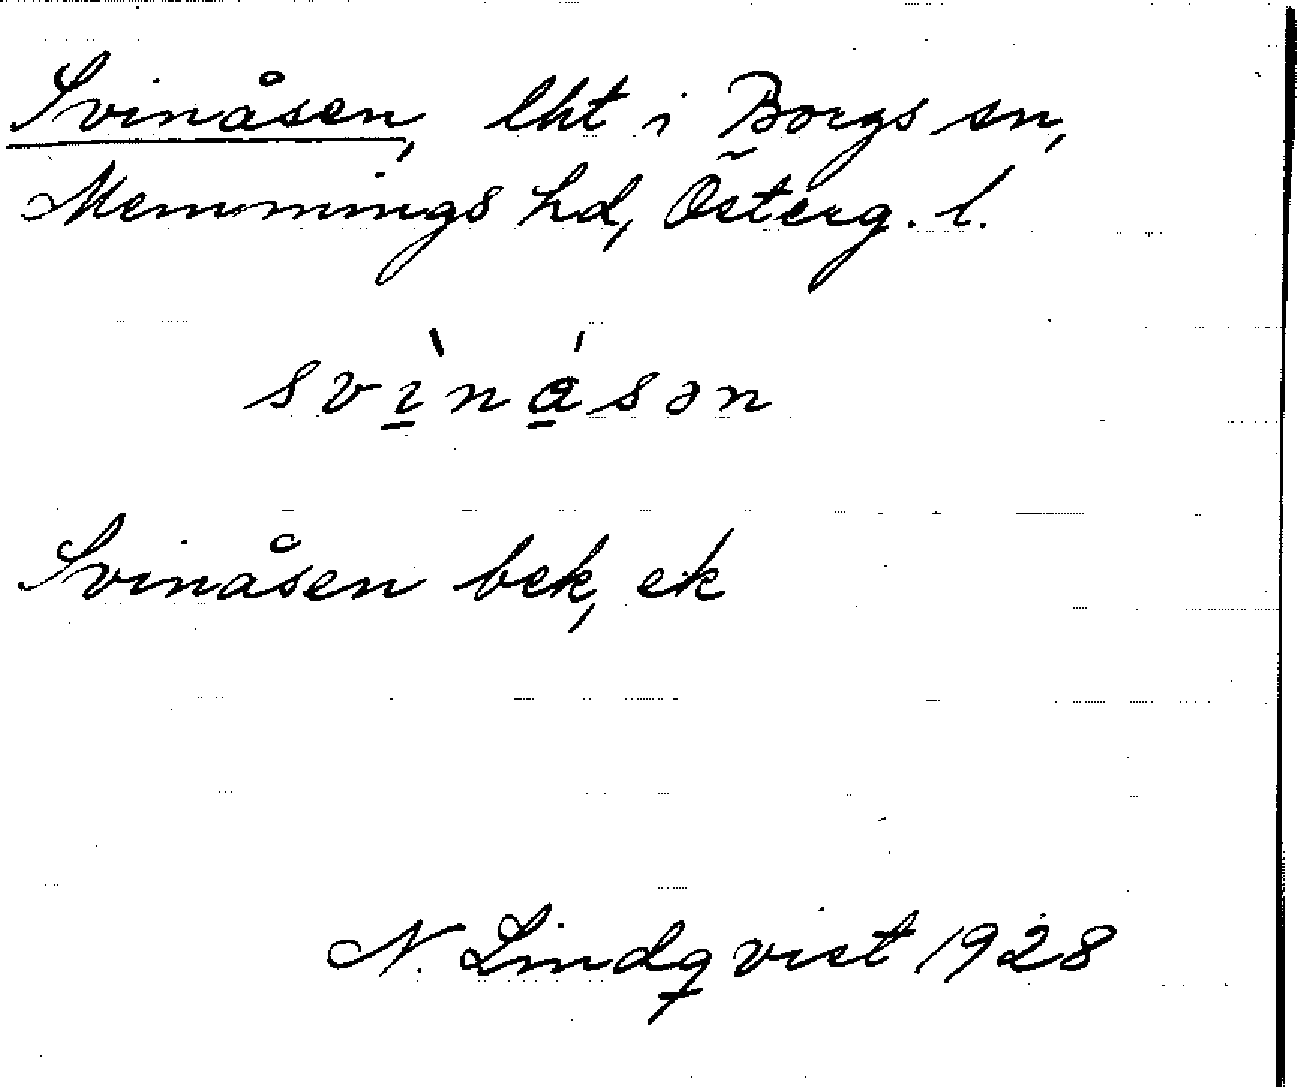 Svinåsen, lht i Borgs sn,
Memmings hd, Österg. l.
svìnåsən
Svinåsen bek, ek
N. Lindqvist 1928